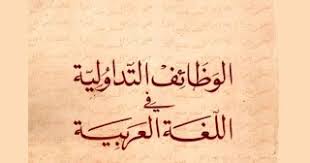 الوَظَائِفُ التَّدَاوُلِيَّة
فِي
اللُّغَة العَرَبِيَّة